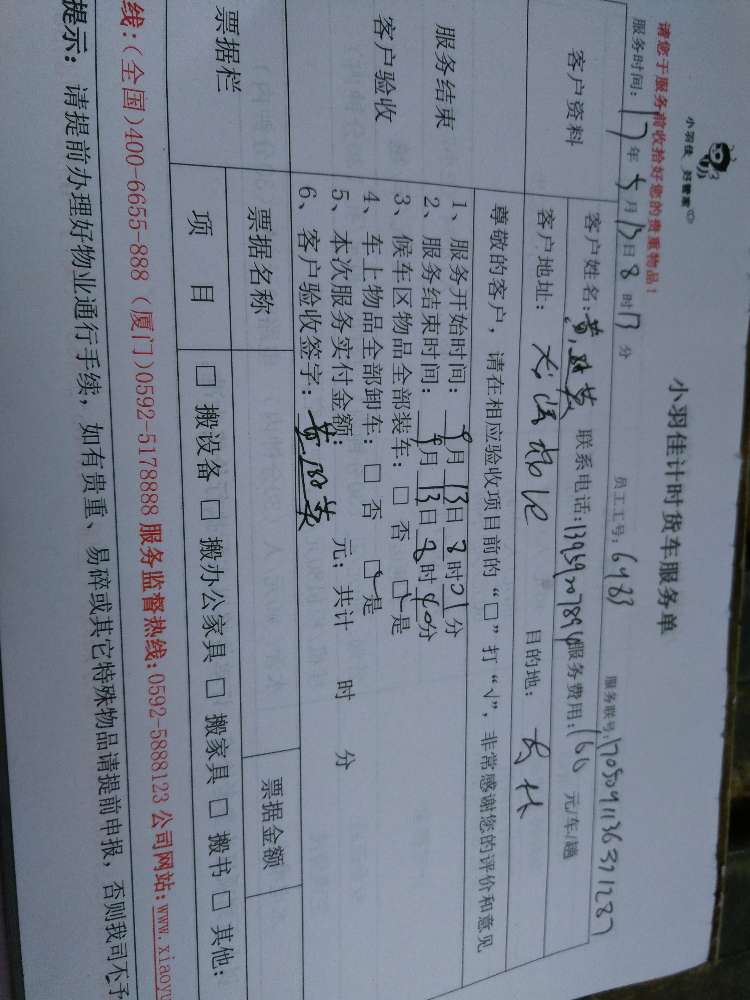 小羽佳 好管家
小羽佳计时货车服务单
请您于服务前收拾好您的贵重物品！
员工工号: 6483
服务时间: 17年5月13日8时17分
客户资料
客户姓名: 黄 英 联系电话: 服务费用: 160 元/车/趟
客户地址: 目的地:
尊敬的客户，请在相应验收项目前的“□”打“√”，非常感谢您的评价和意见
服务结束
客户验收
1、服务开始时间: 月13日8时01分
2、服务结束时间: 月13日 时40分
3、候车区物品全部装车: □ 否 □ 是
4、车上物品全部卸车: □ 否 □ 是
5、本次服务实付金额: 元; 共计 时 分
6、客户验收签字: 黄 英
票据栏
票据名称
票据金额
项 目
□ 搬设备 □ 搬办公家具 □ 搬家具 □ 搬书 □ 其他:
线:(全国)400-6655-888 (厦门)0592-5178888 服务监督热线:0592-5888123 公司网站:www.xiaoyu
提示: 请提前办理好物业通行手续，如有贵重、易碎或其它特殊物品请提前申报，否则我司不予